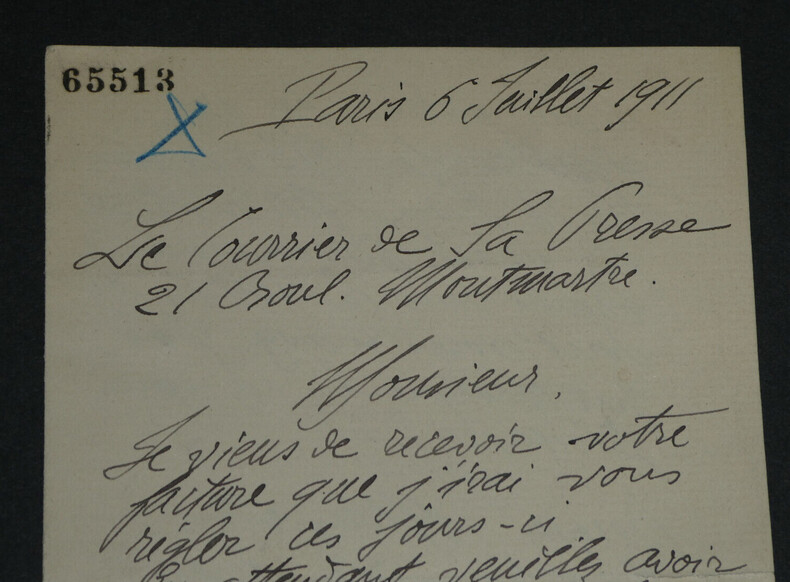 65513
Paris 6 Juillet 1911
Le Courrier de La Presse
21 Boul. Montmartre.
Monsieur,
Je viens de recevoir votre
facture que j'irai vous
régler ces jours-ci
En attendant veuillez avoir